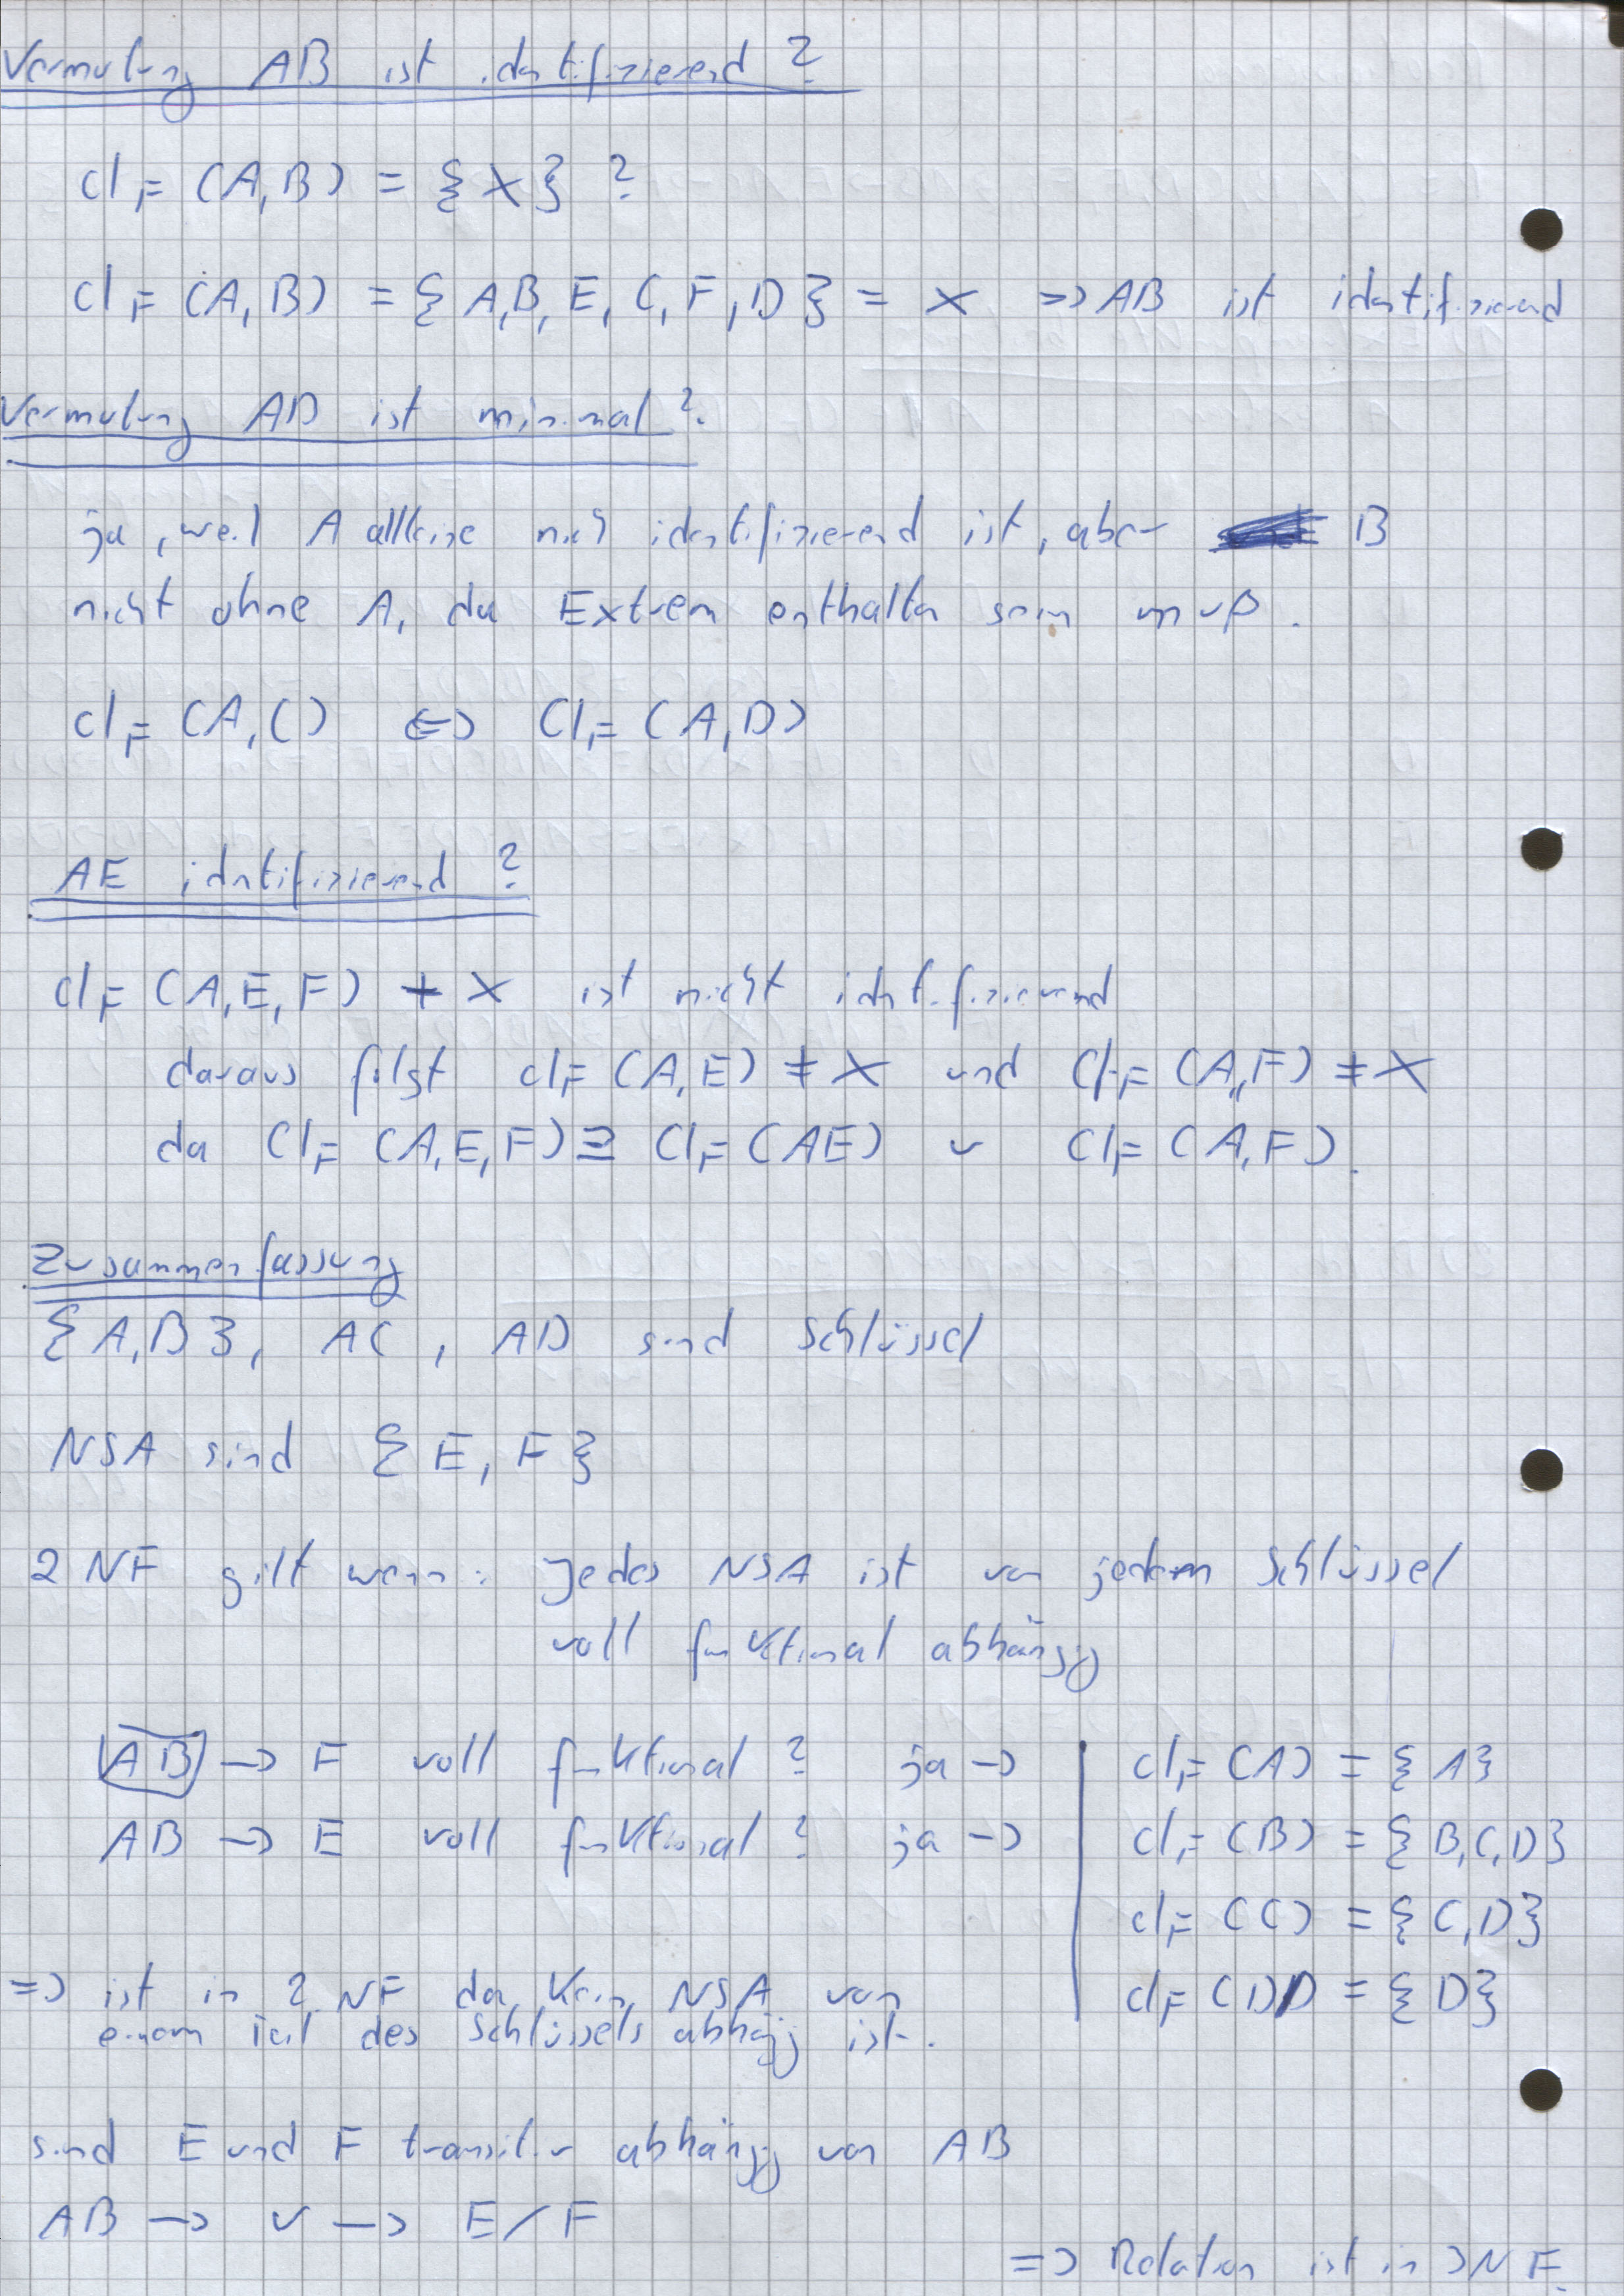 Vermutung AB ist identifizierend?
cl F (A,B) = {X} ?
cl F (A,B) = {A,B,E,C,F,D} = X => AB ist identifizierend
Vermutung AB ist minimal?
ja, weil A alleine nich identifizierend ist, aber B
nicht ohne A, da Extrem enthalten sein muß.
cl F (A,C) <=> Cl F (A,D)
AE identifizierend?
cl F (A,E,F) ≠ X ist nicht identifizierend
daraus folgt cl F (A,E) ≠ X und Cl F (A,F) ≠ X
da Cl F (A,E,F) ⊇ Cl F (AE) ∪ Cl F (A,F).
Zusammenfassung
{A,B}, AC, AD sind Schlüssel
NSA sind {E,F}
2 NF gilt wenn: Jedes NSA ist von jedem Schlüssel
voll funktional abhängig
AB -> F voll funktional? ja -> | cl F (A) = {A}
AB -> E voll funktional? ja -> | cl F (B) = {B,C,D}
cl F (C) = {C,D}
=> ist in 2.NF da kein NSA von | cl F (D) = {D}
einem Teil des Schlüssels abhägig ist.
sind E und F transitiv abhängig von AB
AB -> v -> E/F
=> Relation ist in 3NF.